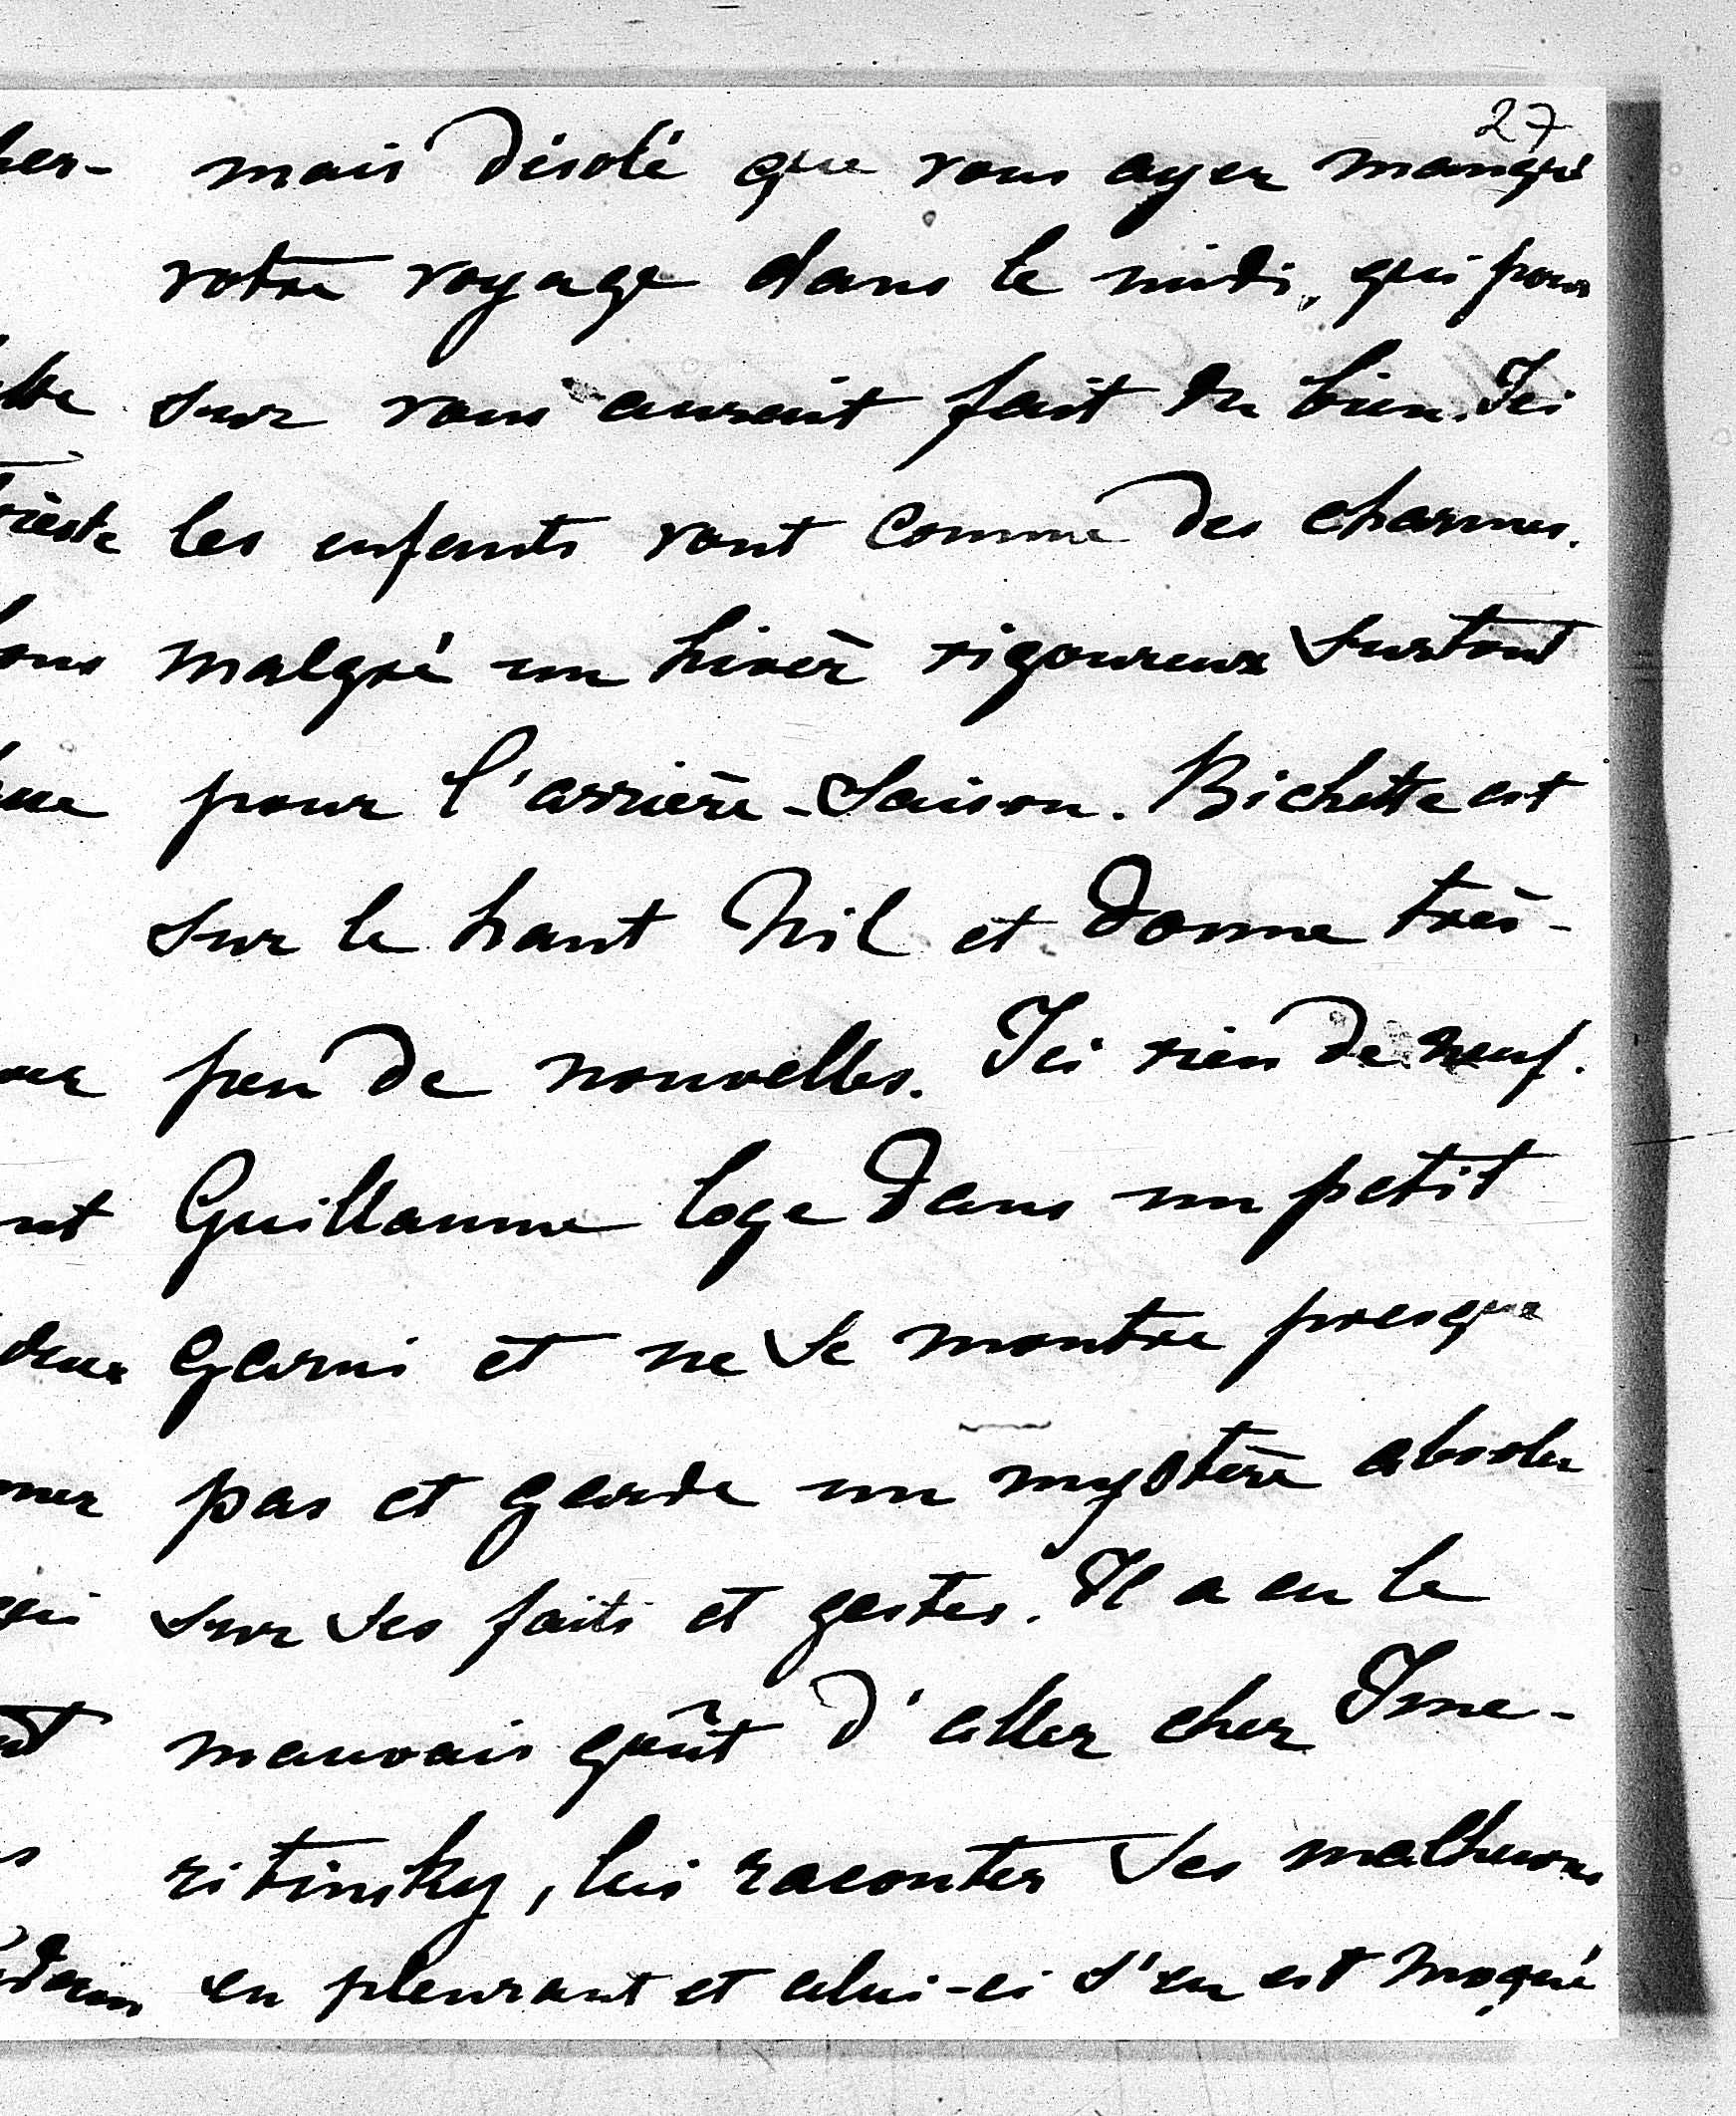 27
mais désolé que vous ayez manqué
votre voyage dans le midi, qui pour
sur vous aurait fait du bien. Ici
les enfants vont comme des charmes.
malgré un hiver rigoureux surtout
pour l'arrière-saison. Bichette est
sur le haut Nil et donne très-
peu de nouvelles. Ici rien de neuf.
Guillaume loge dans un petit
garni et ne se montre presque
pas et garde un mystère absolu
sur ses faits et gestes. Il a eu le
mauvais goût d'aller chez Ime-
ritinsky, lui raconter ses malheurs
en pleurant et celui-ci s'en est moqué